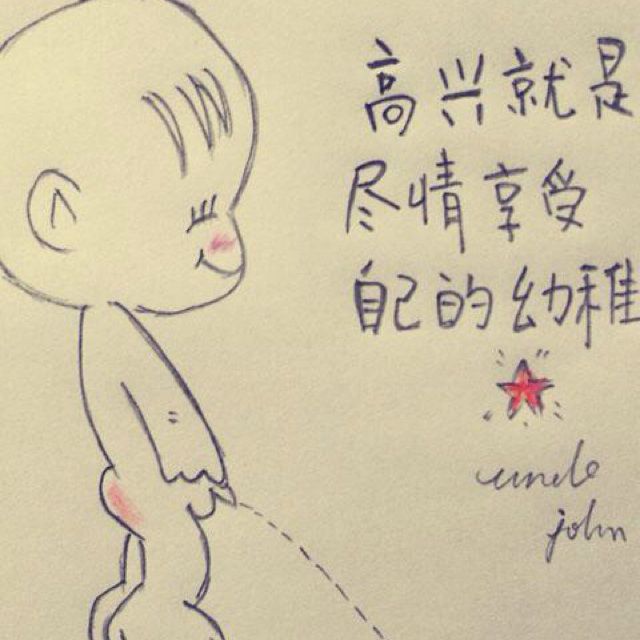 高兴就是
尽情享受
自己的幼稚
uncle
john